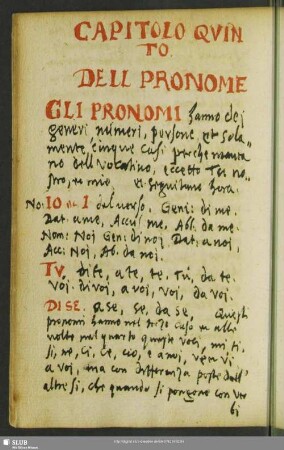 CAPITOLO QVIN
TO.
DELL PRONOME
GLI PRONOMI hanno dei
generi numeri, persone et sola„
mente, cinque casi perche manca
no dell Vocativo, eccetto Tu no„
stro, et mio. Et seguitano hora.
No: IO ou I dal verso. Geni: di me.
Dat: a me, Accu: me, Abl: da me.
Nom: Noi Gen: di noi Dat: a noi,
Acc: Noi, Ab. da noi.
TV, di te, a te, te, Tu, da te.
Voi. di voi, a voi, Voi, da voi.
DI SE. a se, Se, da se,
pronomi hanno nel terzo caso
volte nel quarto queste voci, mi, ti,
si, ne, ci, ce, cio, e a noi, vi
a voi, ma con differenza poste dall'
altre si, che quando si pongono con ver
bi
SLUB